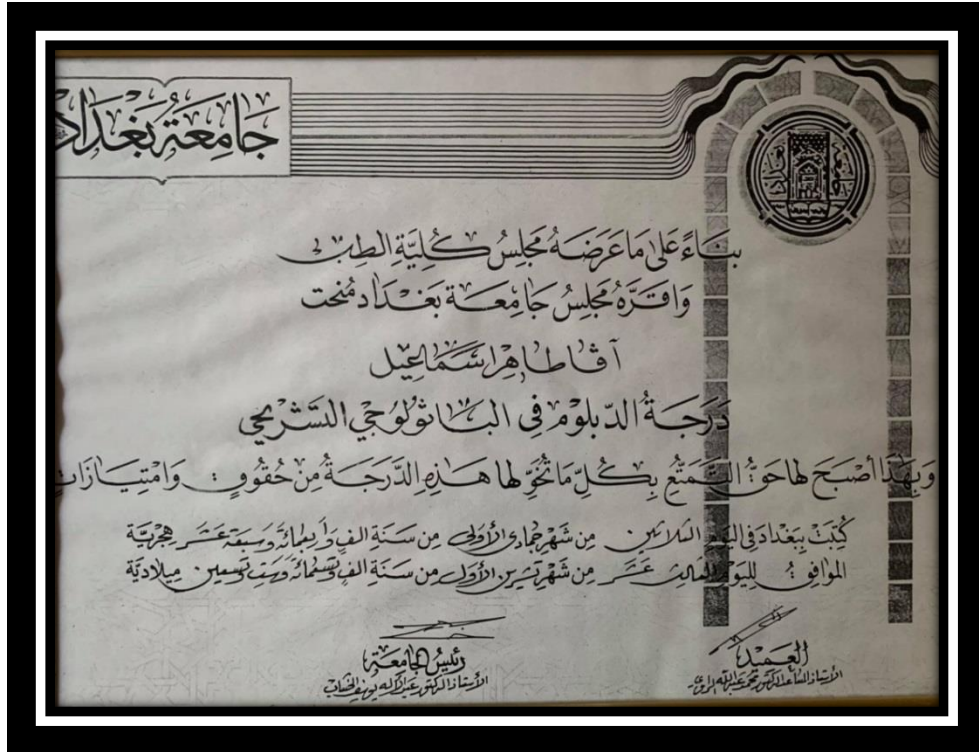 جَامِعَةُ بَغْدَاد
بِنَاءً عَلَى مَا عَرَضَهُ مَجْلِسُ كُلِّيَّةِ الطِب
وَاقَرَّهُ مَجْلِسُ جَامِعَة بَغْدَاد مُنحت
آڤا طاهر اسَمَاعِيل
دَرَجَةُ الدّبلوم في البَاثولوُجي التشريحي
وَبِهٰذَا أصْبَحَ لها حَقُ التَّمَتُّعِ بِكُلِّ مَا تُخَوِّلها هَذِهِ الدَّرَجَةُ مِنْ حُقُوقٍ وَامْتِيَازَاتٍ
كُتِبَتْ بِبَغْدَادَ في اليَوم الثلاثين مِن شهرِ جُمادى الأولى مِن سَنَةِ الفٍ وأربعمائةٍ وسَبعةَ عَشَر هِجريَّة
الموافِق لِليَومِ الثالث عَشَر مِن شَهرِ تشرين الأولِ مِن سَنَةِ الفٍ وتسعمائةٍ وستٍ وتسعين ميلاديَّة
العَميد
الأستاذ المساعد الدكتور محمد عبدالله الراوي
رئيسُ الجامعَة
الأستاذ الدكتور عبدالاله يوسف الخشاب